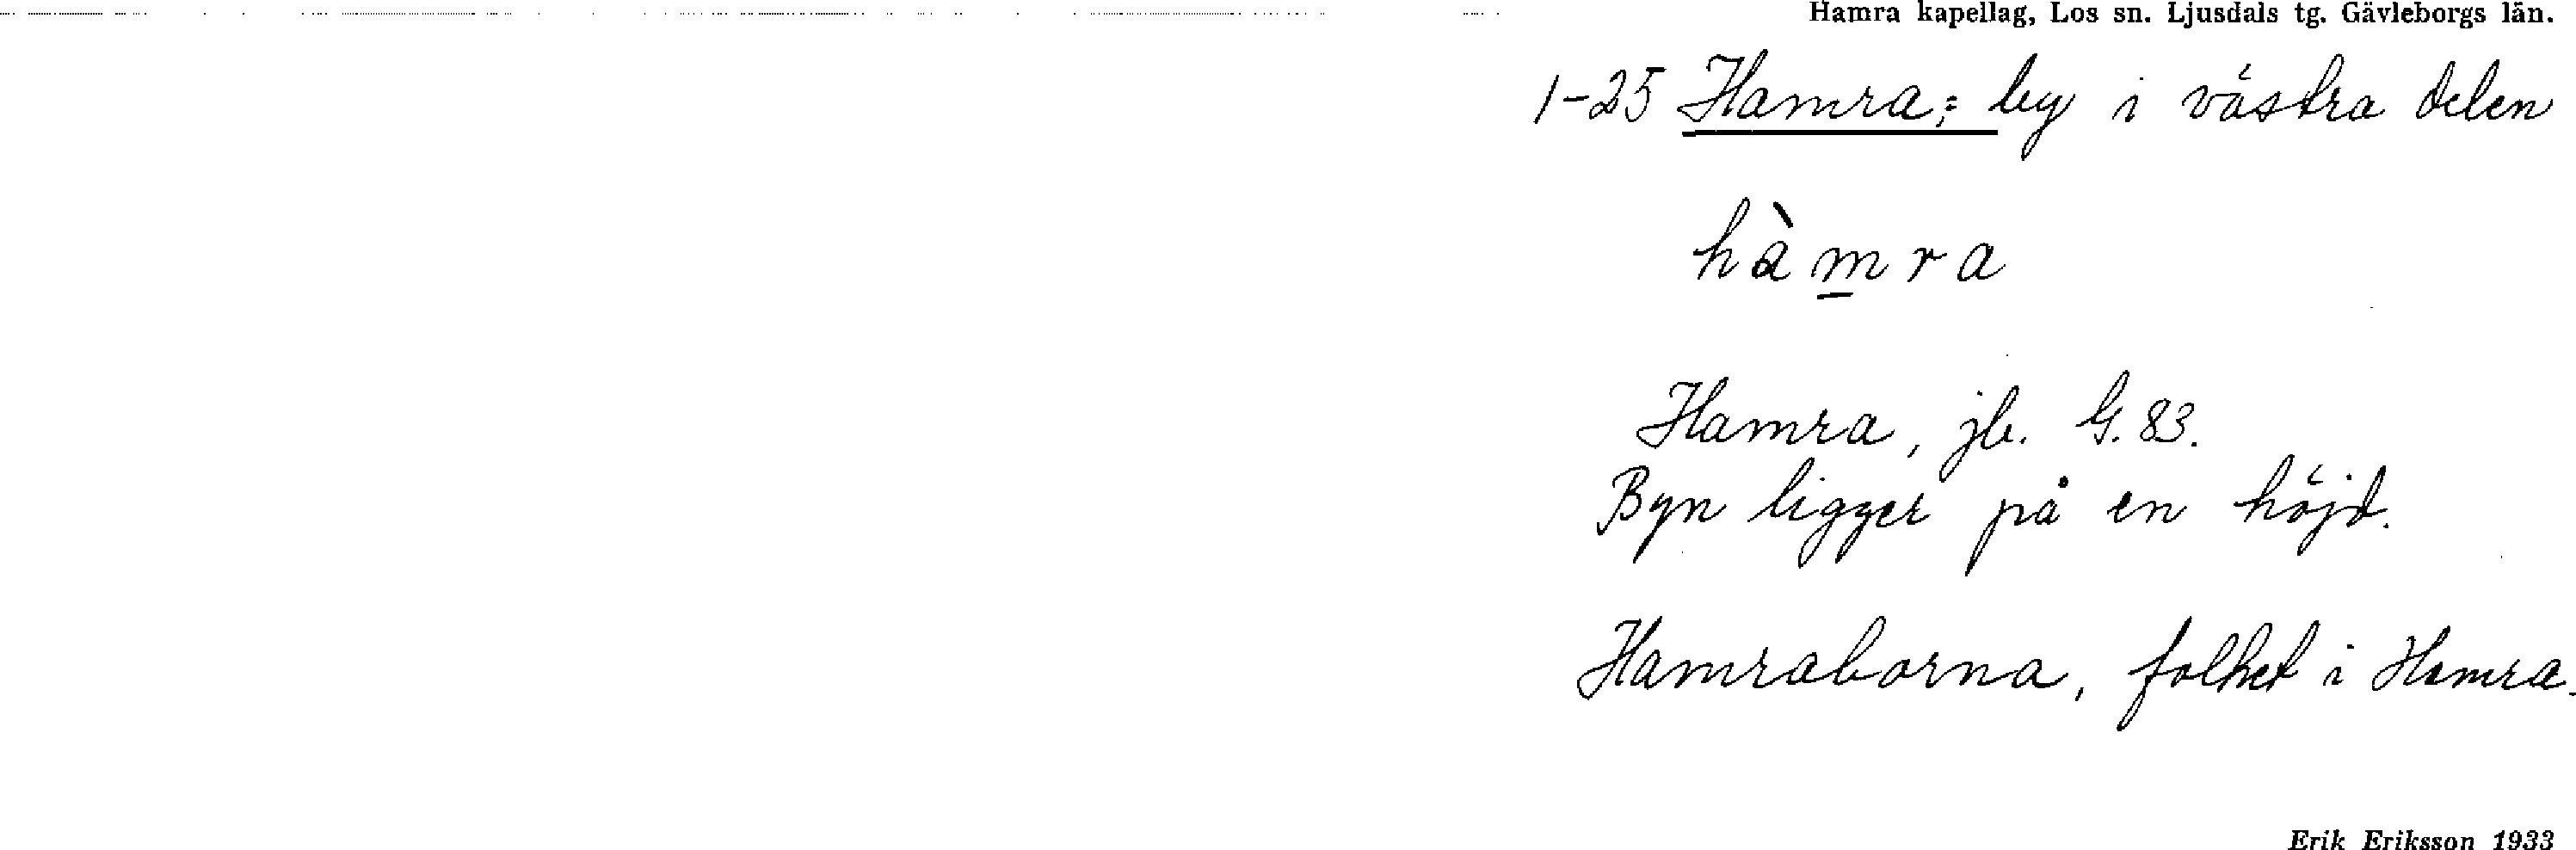 Hamra kapellag, Los sn. Ljusdals tg. Gävleborgs län.
1-25 Hamra; by i västra delen
hàmra
Hamra, jb. G. 83.
Byn ligger på en höjd.
Hamraborna, folket i Hamra.
Erik Eriksson 1933